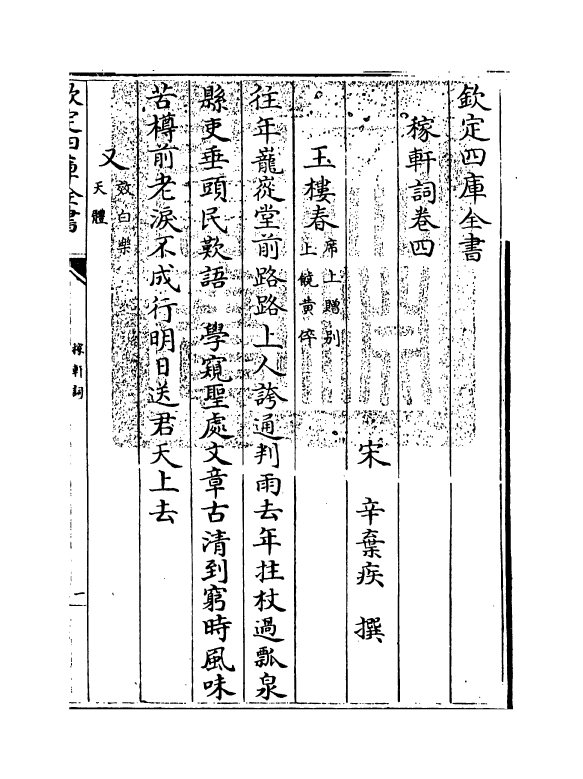 欽定四庫全書
稼軒詞卷四
宋 辛棄疾 撰
玉樓春
席上贈别
上饒黄倅
往年巃嵸堂前路路上人誇通判雨去年拄杖過瓢泉
縣吏垂頭民歎語 學窺聖處文章古清到窮時風味
苦樽前老淚不成行明日送君天上去
又
效白樂
天體
欽定四庫全書
稼軒詞
一